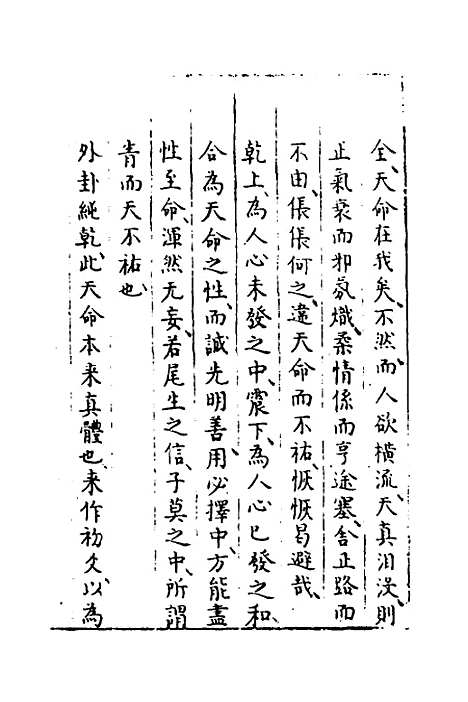 全、天命在我矣、不然而人欲橫流、天真汨沒、則
正氣衰而邪氛熾、桑情係而亨途塞、舍正路而
不由、倀倀何之、違天命而不祐、恢恢曷避哉、
乾上、為人心未發之中、震下、為人心已發之和、
合為天命之性、而誠光明善、用必擇中、方能盡
性至命、渾然无妄、若尾生之信、子莫之中、所謂
眚而天不祐也、
外卦純乾、此天命本来真體也、来作初爻、以為